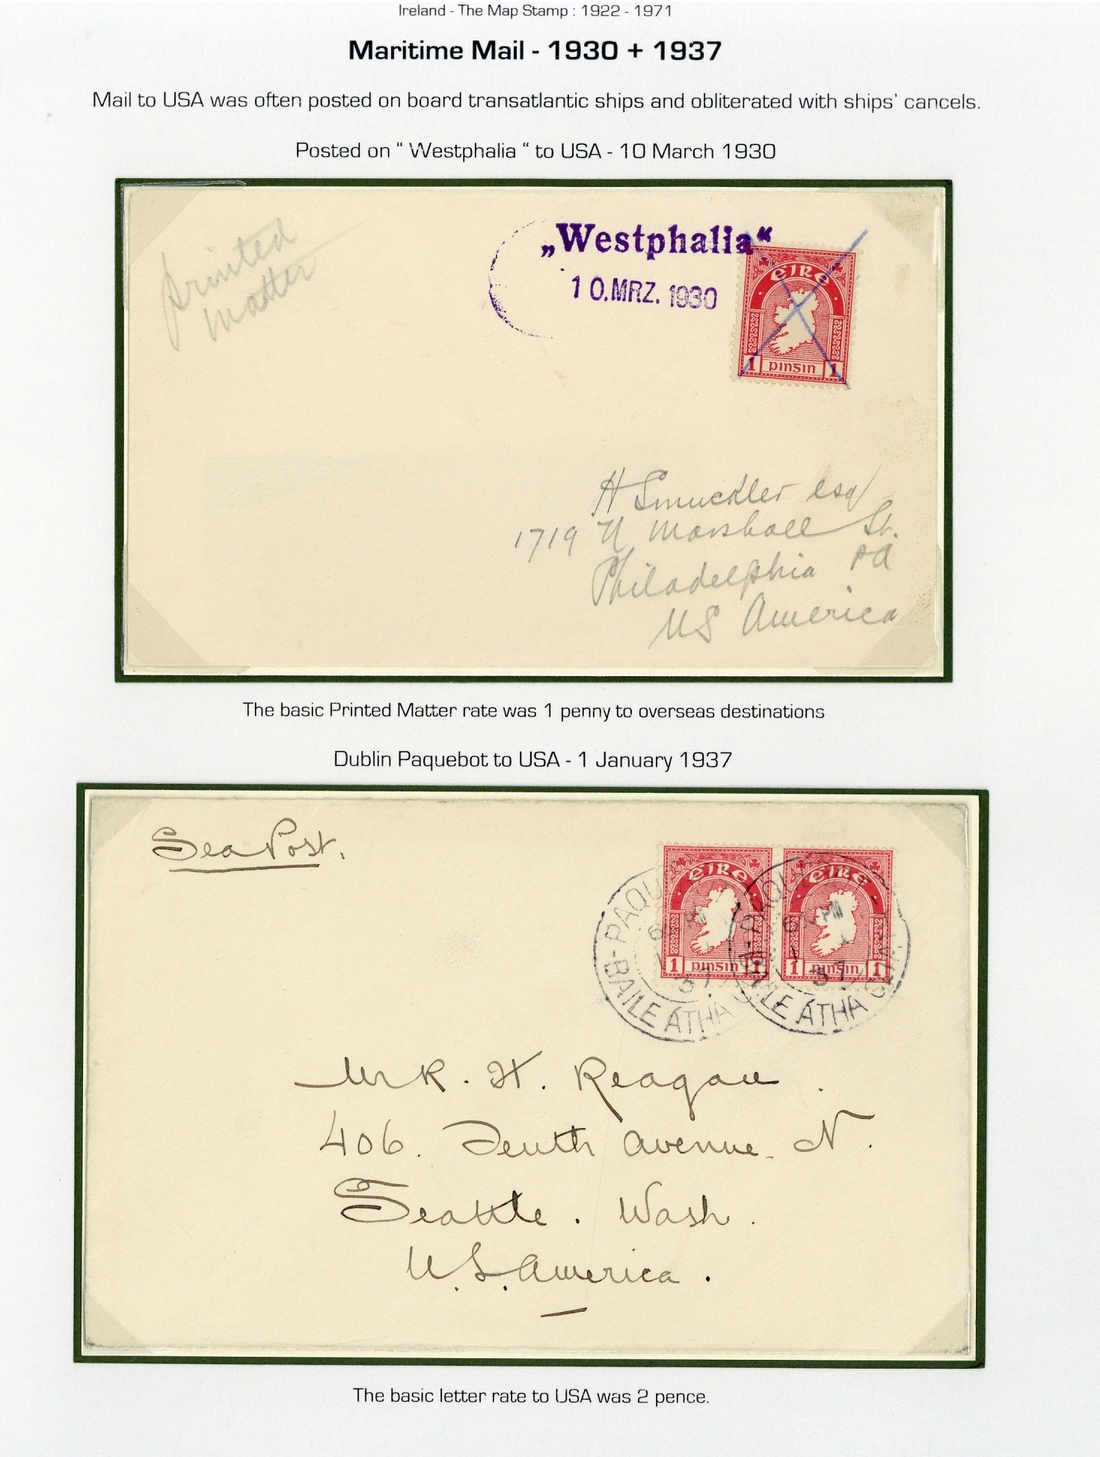 Ireland - The Map Stamp : 1922 - 1971
Maritime Mail - 1930 + 1937
Mail to USA was often posted on board transatlantic ships and obliterated with ships' cancels.
Posted on “ Westphalia “ to USA - 10 March 1930
printed
matter
„Westphalia“
10.MRZ. 1930
EIRE
1 PINSIN 1
H Smuckler esq
1719 N Marshall St.
Philadelphia PA
US America
The basic Printed Matter rate was 1 penny to overseas destinations
Dublin Paquebot to USA - 1 January 1937
Sea Post.
EIRE
1 PINSIN 1
EIRE
1 PINSIN 1
BAILE ÁTHA
ÁTHA
Mr R. H. Reagan
406. Tenth Avenue. N.
Seattle. Wash.
U.S. America.
The basic letter rate to USA was 2 pence.